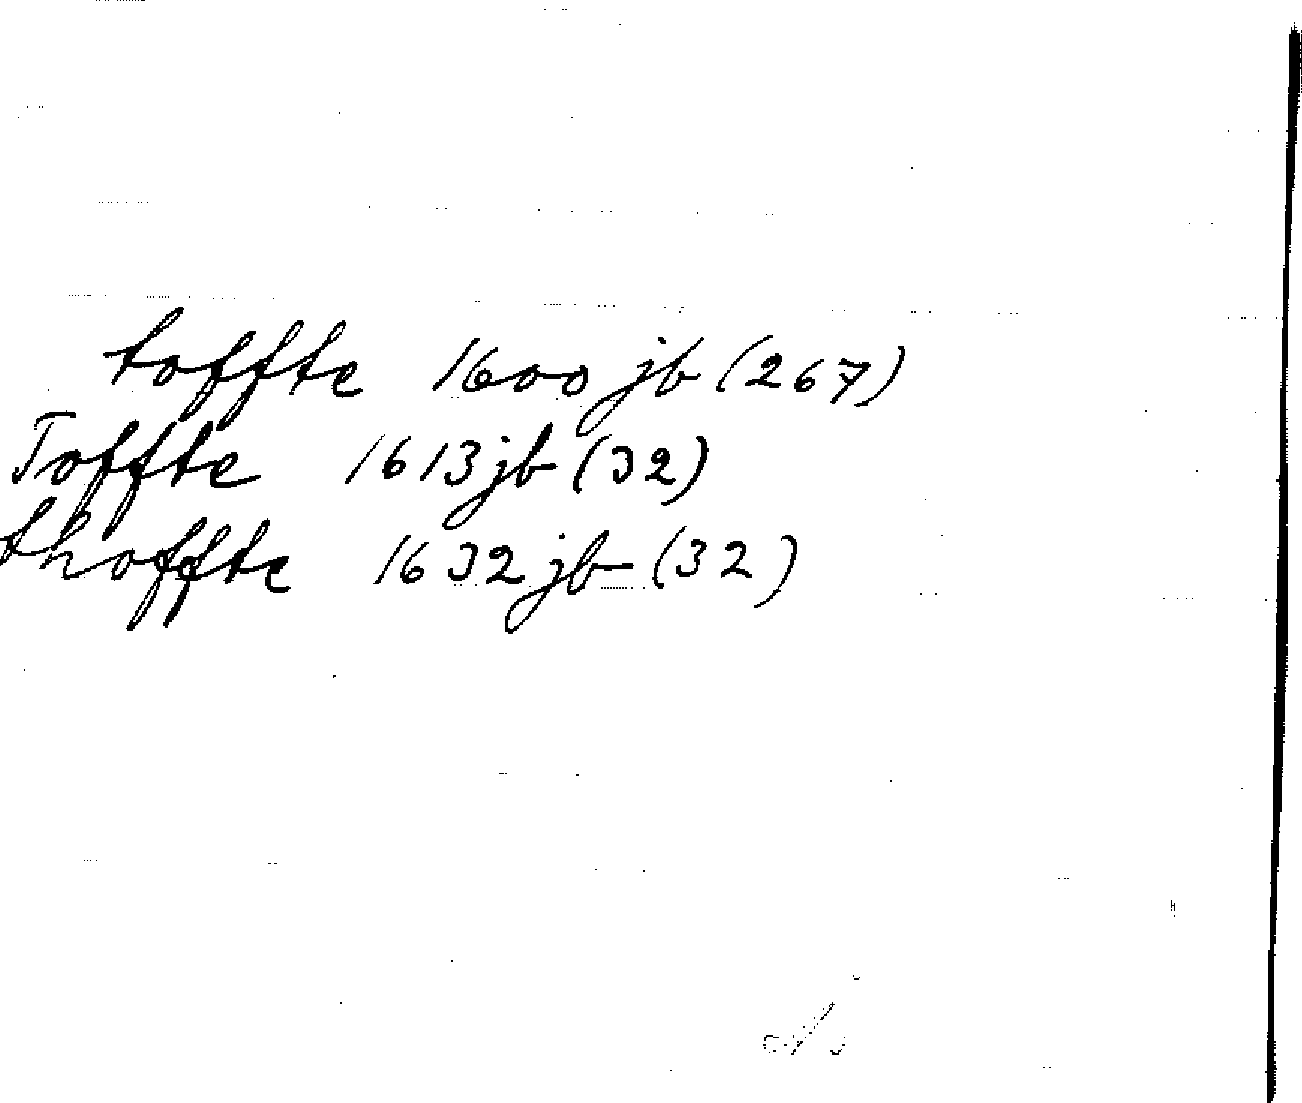 toffte 1600 jb (267)
Toffte 1613 jb (32)
thoffte 1632 jb (32)